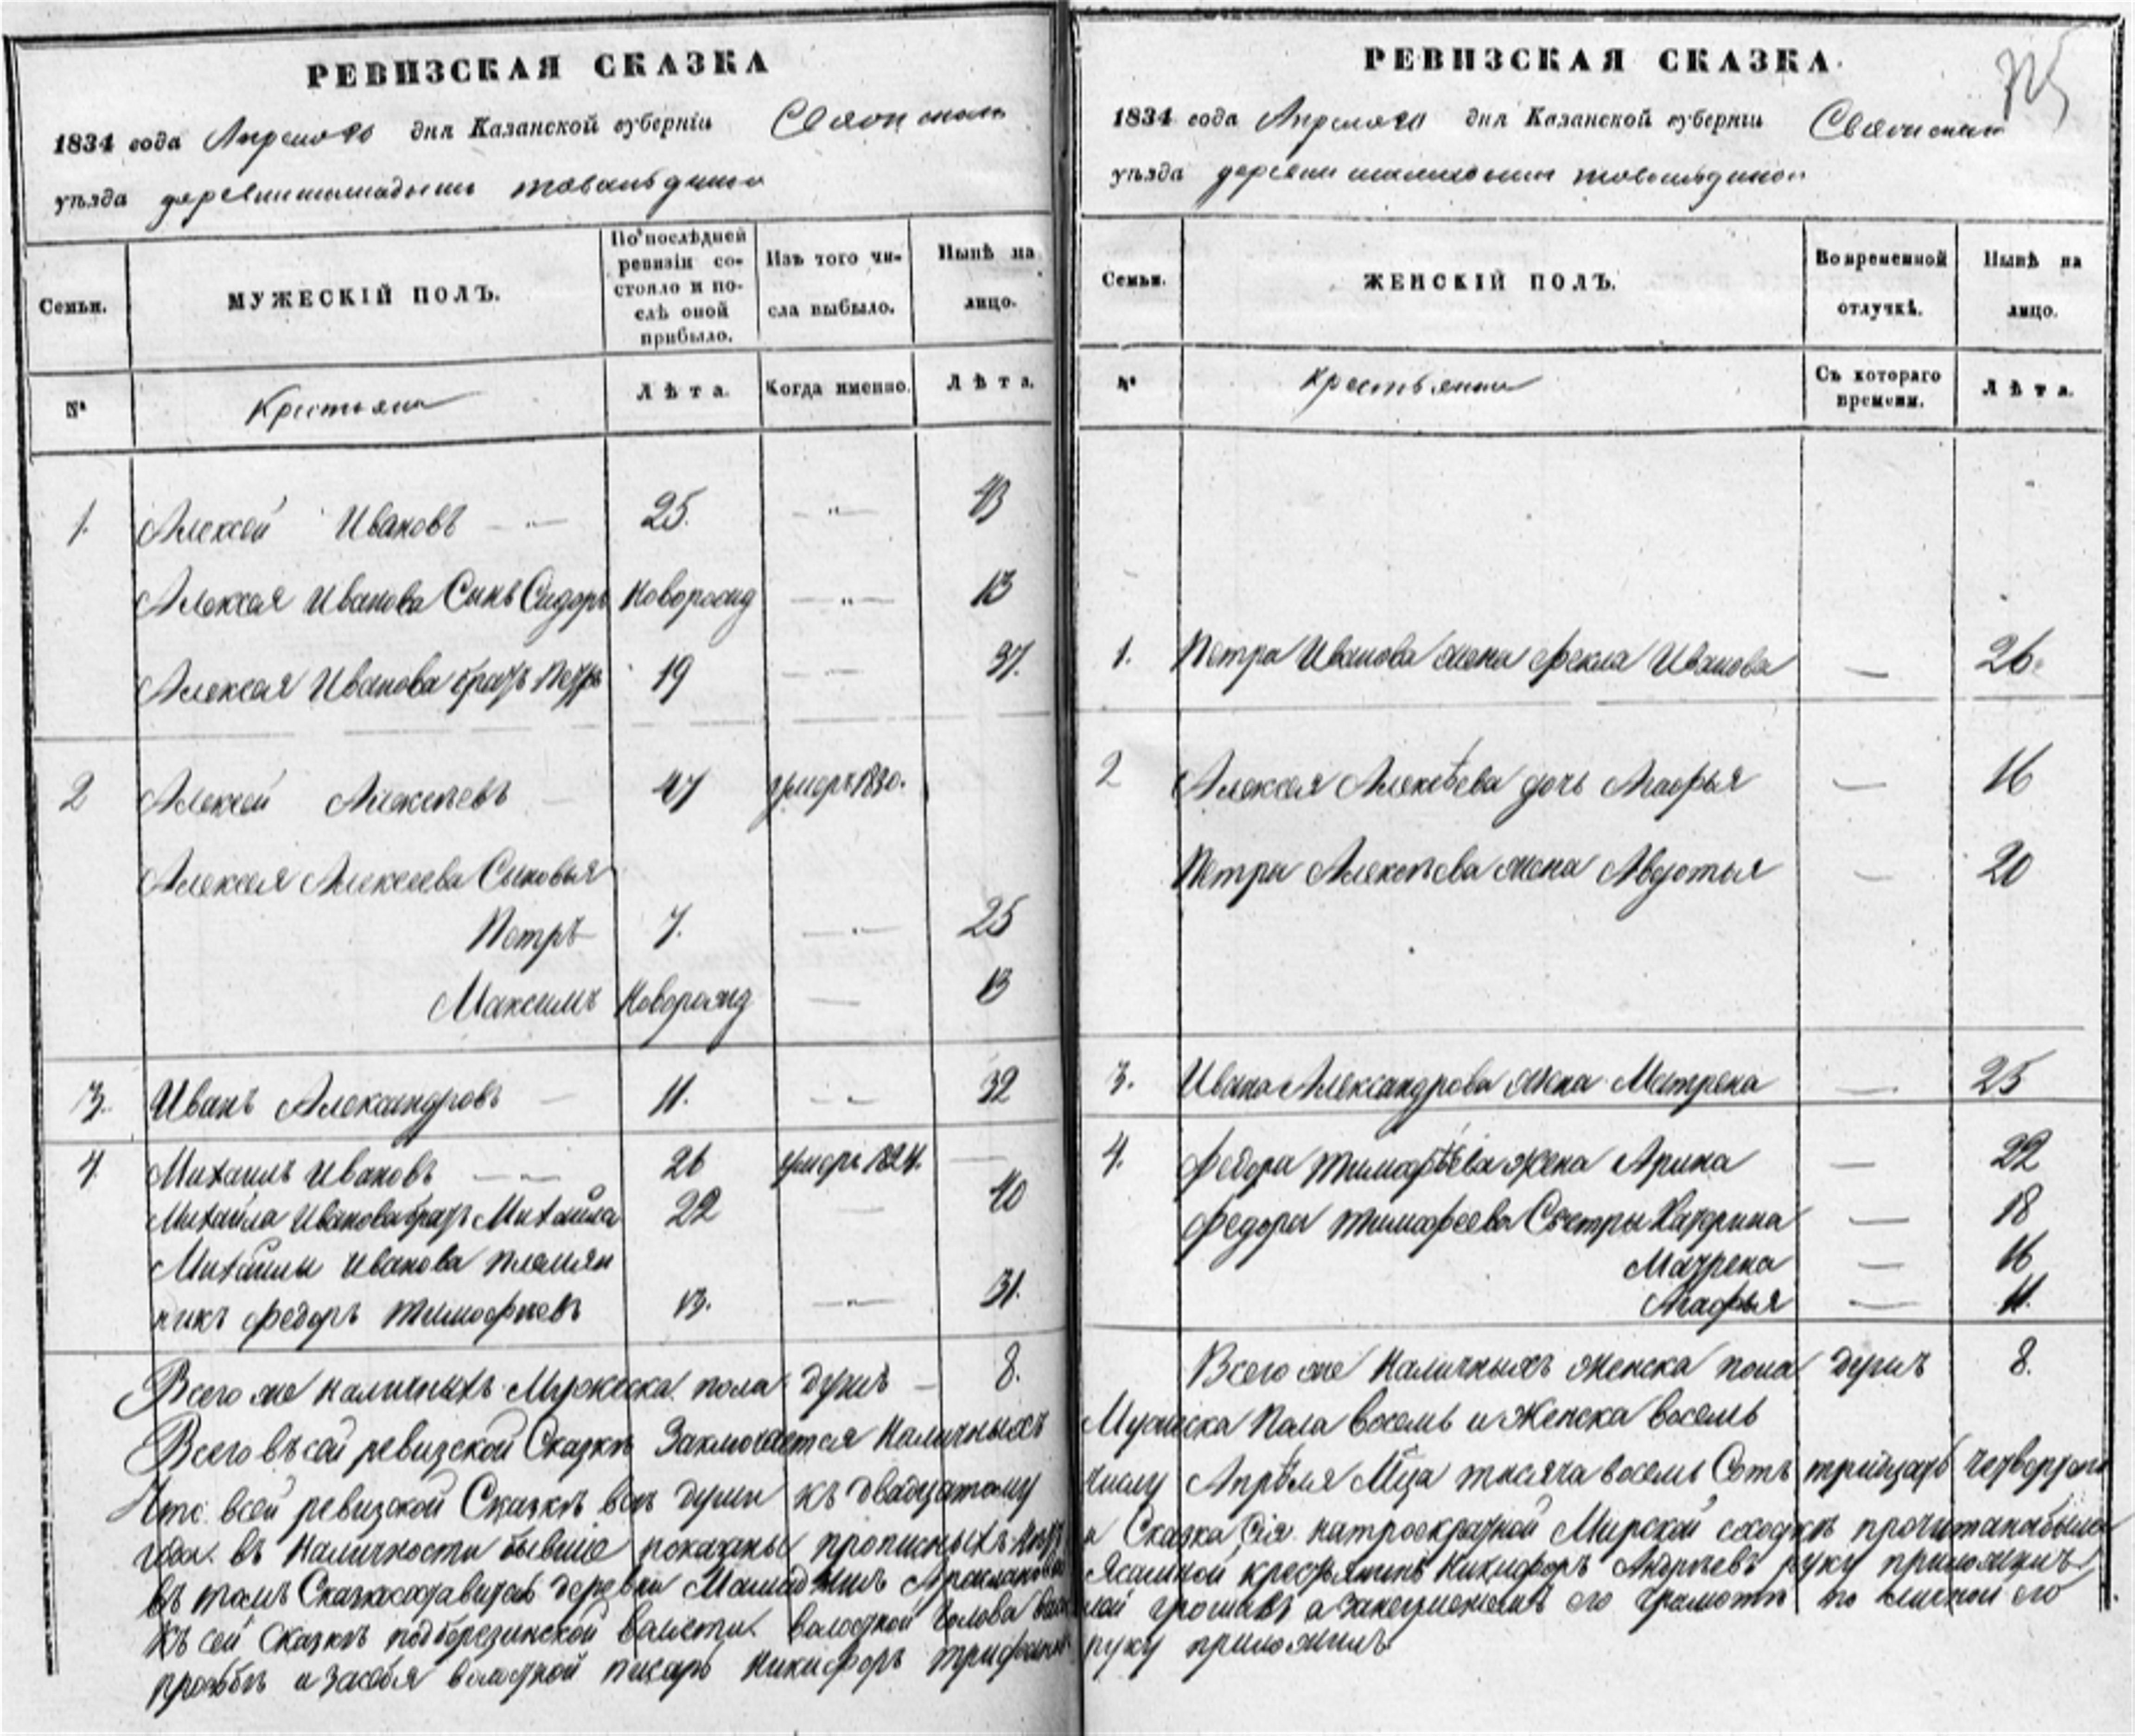 РЕВИЗСКАЯ СКАЗКА
1834 года Апреля 20 дня Казанской губерніи
уѣзда деревни
Семьи.
МУЖЕСКІЙ ПОЛЪ.
По послѣдней ревизіи со-
стояло и по-
слѣ оной
прибыло.
Изъ того чи-
сла выбыло.
Нынѣ на
лицо.
№
Крестьяне
Лѣта.
Когда именно.
Лѣта.
1. Алексей Ивановъ 25. 43
Алексея Иванова Сынъ Сидоръ Новорожд 13
Алексея Иванова братъ Петръ 19 37.
2 Алексей Алексеевъ 47 умеръ 1830.
Алексея Алексеева Сыновья
Петръ 7. 25
Максимъ Новорожд 13
3. Иванъ Александровъ 11. 32
4 Михаилъ Ивановъ 26 умеръ 1824.
Михайла Иванова братъ Михайла 22 40
Михайлы Иванова племян
никъ Федоръ Тимофеевъ 13. 31.
Всего же наличныхъ Мужеска пола душъ 8.
Всего въ сей ревизской Сказкѣ Заключается Наличныхъ
Что всей ревизской Сказкѣ всѣ души къ двадцатому
года въ Наличности бывшіе показаны прописныхъ
въ томъ деревни
къ сей Сказкѣ волости голова
прозьбѣ и засебя писарь Никифоръ
РЕВИЗСКАЯ СКАЗКА.
1834 года Апреля 20 дня Казанской губерніи
уѣзда деревни
Семьи.
ЖЕНСКІЙ ПОЛЪ.
Во временной
отлучкѣ.
Нынѣ на
лицо.
№
Крестьянки
Съ котораго
времени.
Лѣта.
1. Петра Иванова жена Фекла Иванова 26.
2 Алексея Алексѣева дочь Агафья 16
Петра Алексѣева жена Авдотья 20
3. Ивана Александрова жена Матрена 25
4. Федора Тимофѣева жена Арина 22
Федора Тимофеева Сестры Катерина 18
Матрена 16
Агафья 11.
Всего же Наличныхъ женска пола душъ 8.
Мужеска Пола восемь и Женска восемь
числу Апрѣля Мца тысяча восемь Сотъ тритцать четвертаго
и Сказка Сія Мирской сходкѣ прочитана была
Никифоръ Андреевъ руку приложилъ
его грамотѣ по личной его
руку приложилъ